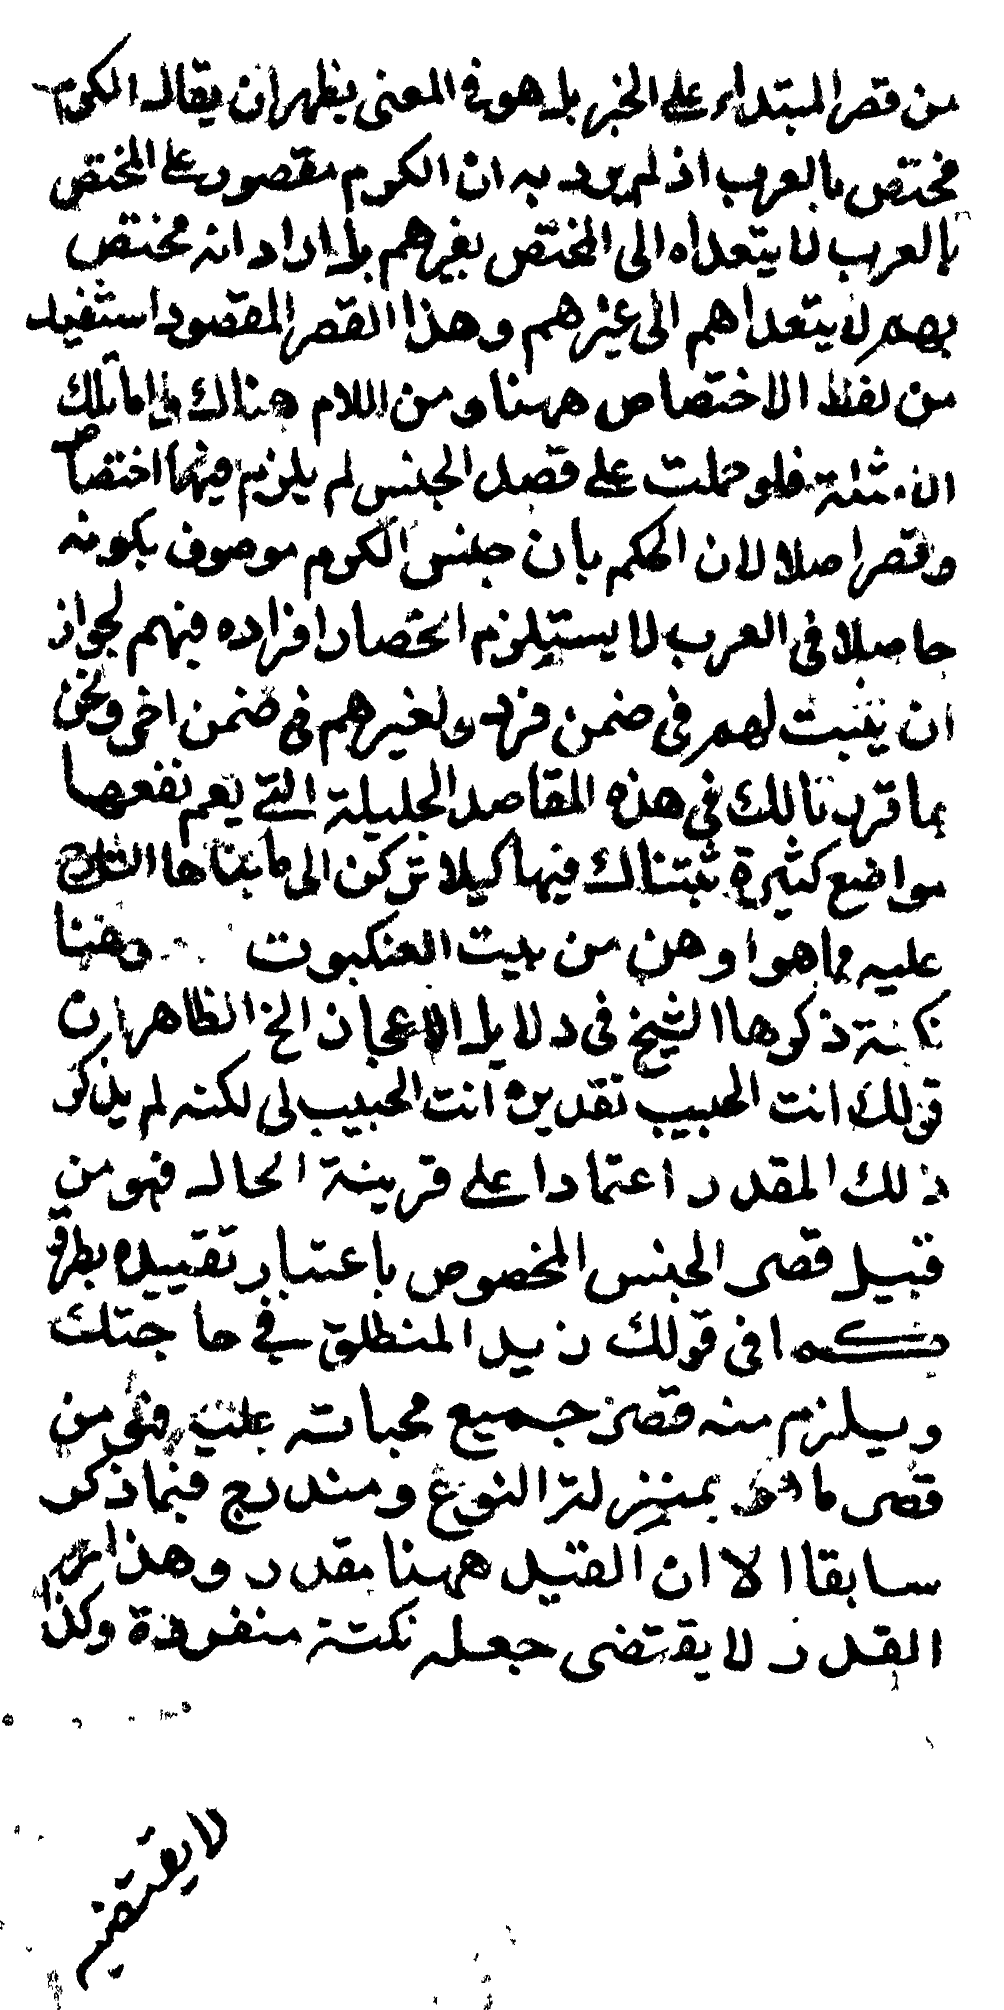 من قصر المبتداء على الخبر بل هو في المعنى يظهر ان يقال الكرم
مختص بالعرب اذ لم يرد به ان الكرم مقصور على المختص
بالعرب لا يتعداه الى المختص بغيرهم بل اراد انه مختص
بهم لا يتعداهم الى غيرهم وهذا القصر المقصود استفيد
من لفظ الاختصاص ههنا ومن اللام هناك واما تلك
الامثلة فلو حملت على قصد الجنس لم يلزم فيها اختصاص
وقصر اصلا لان الحكم بان جنس الكرم موصوف بكونه
حاصلا في العرب لا يستلزم انحصار افراده فيهم لجواز
ان يثبت لهم في ضمن فرد ولغيرهم في ضمن اخر ونحن
بما قررنا لك في هذه المقاصد الجليلة التي يعم نفعها
مواضع كثيرة ثبتناك فيها كيلا تركن الى ما بناها الشارح
عليه مما هو اوهن من بيت العنكبوت وههنا
نكتة ذكرها الشيخ في دلايل الاعجاز الخ الظاهر ان
قولك انت الحبيب تقديره انت الحبيب لي لكنه لم يذكر
ذلك المقدر اعتمادا على قرينة الحال فهو من
قبيل قصر الجنس المخصوص باعتبار تقييده بظرف
كما في قولك زيد المنطلق في حاجتك
ويلزم منه قصر جميع محباته عليه فهي من
قصر ما هو بمنزلة النوع ومندرج فيما ذكر
سابقا الا ان القيد ههنا مقدر وهذا
القدر لا يقتضي جعله نكتة منفردة وكذا
لا يقتضيه